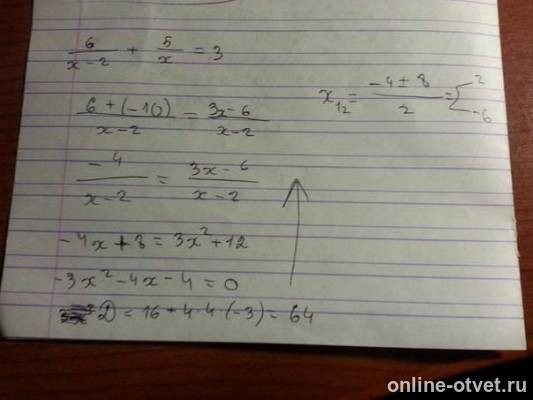 6/(x-2) + 5/x = 3
(6+(-10))/(x-2) = (3x-6)/(x-2)
-4/(x-2) = (3x-6)/(x-2)
-4x+8 = 3x²+12
-3x²-4x-4=0
D = 16+4·4(-3) = 64
x₁₂ = (-4±8)/2 = 2
-6
online-otvet.ru